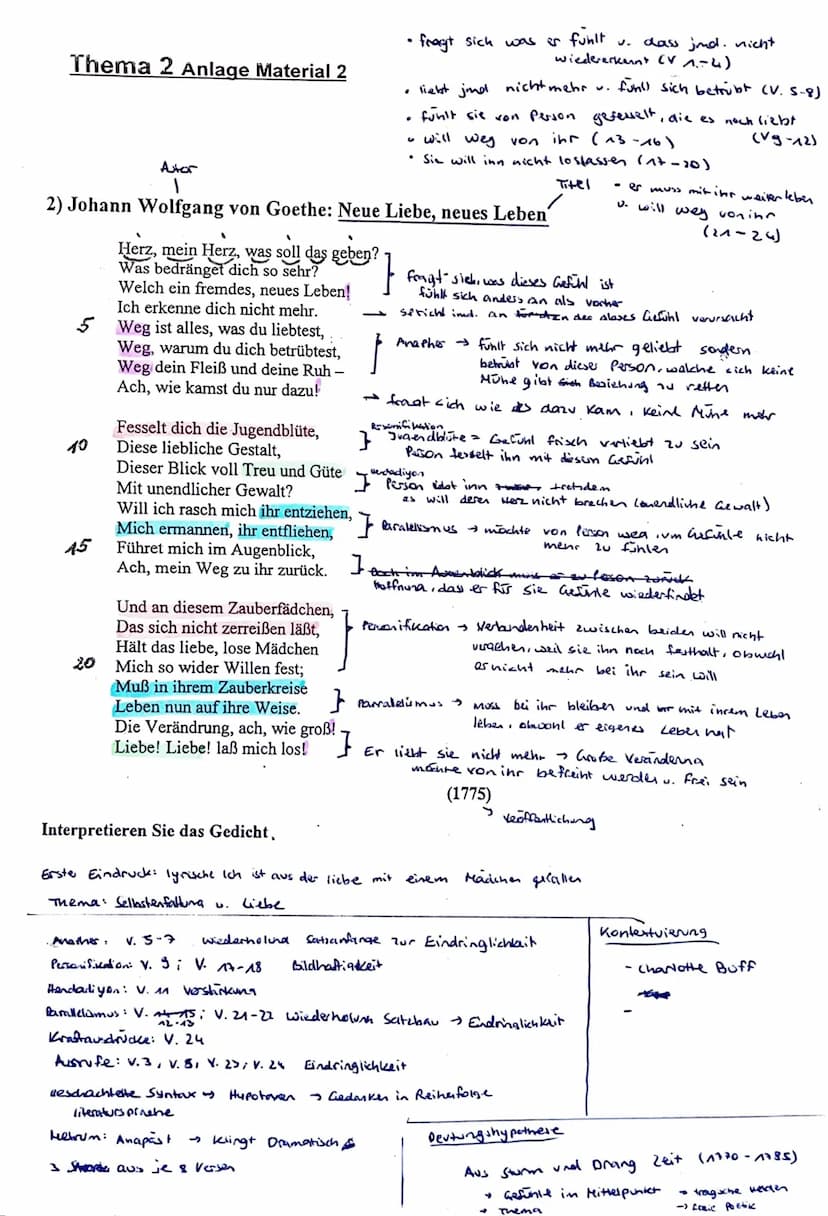 • fragt sich was er fühlt u. dass jmd. nicht
wiedererkennt (V 1-4)
Thema 2 Anlage Material 2
• liebt jmd nicht mehr u. fühlt sich betrübt (V. 5-8)
• fühlt sie von Person gefesselt, die es noch liebt
(V9-12)
• will weg von ihr (13-16)
• Sie will inn nicht loslassen (17-20)
Autor
Titel
- er muss mit ihr weiter leben
u. will weg von ihr
(21-24)
2) Johann Wolfgang von Goethe: Neue Liebe, neues Leben
Herz, mein Herz, was soll das geben?
Was bedränget dich so sehr?
fragt sich, was dieses Gefühl ist
Welch ein fremdes, neues Leben!
fühlt sich anders an als vorher
Ich erkenne dich nicht mehr.
→ spricht jmd. an der dieses Gefühl verursacht
5 Weg ist alles, was du liebtest,
Weg, warum du dich betrübtest,
Anapher → fühlt sich nicht mehr geliebt sondern
betrübt von dieser Person, welche sich keine
Weg dein Fleiß und deine Ruh –
Mühe gibt sich Beziehung zu retten
Ach, wie kamst du nur dazu!
→ fragt sich wie es dazu kam, keine Mühe mehr
Fesselt dich die Jugendblüte,
Personifikation
Jugendblüte = Gefühl frisch verliebt zu sein
10 Diese liebliche Gestalt,
Person fesselt ihn mit diesem Gefühl
Dieser Blick voll Treu und Güte
Hendadiyon
Mit unendlicher Gewalt?
Person inn trotzdem
es will deren Herz nicht brechen (unendliche Gewalt)
Will ich rasch mich ihr entziehen,
Mich ermannen, ihr entfliehen,
Paralelismus → möchte von Person weg, um Gefühle nicht
mehr zu fühlen
15 Führet mich im Augenblick,
Ach, mein Weg zu ihr zurück.
Doch im Augenblick muss er zu Person zurück
Hoffnung, dass er für sie Gefühle wiederfindet
Und an diesem Zauberfädchen,
Das sich nicht zerreißen läßt,
Personifikation → Verbundenheit zwischen beiden will nicht
vergehen, weil sie ihn noch festhält, obwohl
Hält das liebe, lose Mädchen
er nicht mehr bei ihr sein will
20 Mich so wider Willen fest;
Muß in ihrem Zauberkreise
Leben nun auf ihre Weise.
Parralelismus → muss bei ihr bleiben und mit ihrem Leben
leben, obwohl er eigenes Leben hat
Die Verändrung, ach, wie groß!
Liebe! Liebe! laß mich los!
Er liebt sie nicht mehr → Große Veränderung
möchte von ihr befreint werden u. frei sein
(1775)
Veröffentlichung
Interpretieren Sie das Gedicht.
Erste Eindruck: lyrische Ich ist aus der liebe mit einem Mädchen gefallen
Thema: Selbstentfaltung u. Liebe
Anapher: V. 5-7 Wiederholung Satzanfänge zur Eindringlichkeit
Personifikation: V. 9; V. 17-18 Bildhaftigkeit
Hendadiyon: V. 11 Verstärkung
Parallelismus: V. 14-15; V. 21-22 Wiederholung Satzbau → Eindringlichkeit
12-13
Kraftausdrücke: V. 24
Ausrufe: V. 3, V. 8, V. 23, V. 24 Eindringlichkeit
verschachtelte Syntax → Hypotaxen → Gedanken in Reihenfolge
literatursprache
Metrum: Anapäst → klingt Dramatisch
3 aus je 8 Versen
Kontextuierung
- Charlotte Buff
-
Deutungshypothese
Aus Sturm und Drang Zeit (1770-1785)
→ Gefühle im Mittelpunkt → tragische Helden
→ Thema